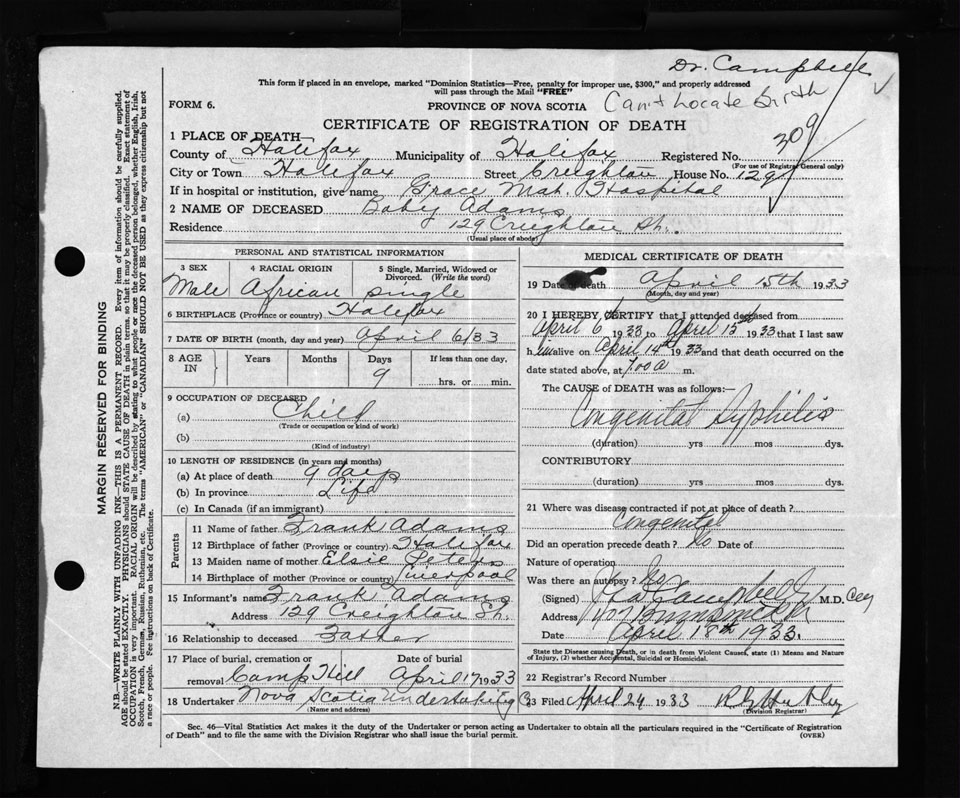 Dr. Campbell
This form if placed in an envelope, marked "Dominion Statistics—Free, penalty for improper use, $300," and properly addressed
will pass through the Mail "FREE"
Can't Locate birth
FORM 6.
PROVINCE OF NOVA SCOTIA
CERTIFICATE OF REGISTRATION OF DEATH
309
1 PLACE OF DEATH—
County of Halifax Municipality of Halifax Registered No.
(For use of Registrar General only)
City or Town Halifax Street Creighton House No. 129
If in hospital or institution, give name Grace Mat. Hospital
2 NAME OF DECEASED Baby Adams
Residence 129 Creighton St.
(Usual place of abode)
PERSONAL AND STATISTICAL INFORMATION
3 SEX 4 RACIAL ORIGIN 5 Single, Married, Widowed or Divorced. (Write the word)
Male African single
6 BIRTHPLACE (Province or country) Halifax
7 DATE OF BIRTH (month, day and year) April 6/33
8 AGE IN Years Months Days If less than one day,
9 hrs. or min.
9 OCCUPATION OF DECEASED
(a) Child
(Trade or occupation or kind of work)
(b)
(Kind of industry)
10 LENGTH OF RESIDENCE (in years and months)
(a) At place of death 9 days
(b) In province Life
(c) In Canada (if an immigrant)
Parents
11 Name of father Frank Adams
12 Birthplace of father (Province or country) Halifax
13 Maiden name of mother Elsie Peters
14 Birthplace of mother (Province or country) Liverpool
15 Informant's name Frank Adams
Address 129 Creighton St.
16 Relationship to deceased Father
17 Place of burial, cremation or removal Camp Hill Date of burial April 17 1933
18 Undertaker Nova Scotia Undertaking Co
(Name and address)
MEDICAL CERTIFICATE OF DEATH
19 Date of death April 15th 1933
(Month, day and year)
20 I HEREBY CERTIFY that I attended deceased from
April 6 1933 to April 15 1933 that I last saw
him alive on April 14th 1933 and that death occurred on the
date stated above, at 7.00 a m.
The CAUSE of DEATH was as follows:—
Congenital Syphilis
(duration) yrs mos dys.
CONTRIBUTORY
(duration) yrs mos dys.
21 Where was disease contracted if not at place of death?
Congenital
Did an operation precede death? No Date of
Nature of operation
Was there an autopsy? No
(Signed) Campbell M.D.
Address
Date April 18th 1933.
State the Disease causing Death, or in death from Violent Causes, state (1) Means and Nature
of Injury, (2) whether Accidental, Suicidal or Homicidal.
22 Registrar's Record Number
23 Filed April 24 1933
(Division Registrar)
Sec. 46—Vital Statistics Act makes it the duty of the Undertaker or person acting as Undertaker to obtain all the particulars required in the "Certificate of Registration
of Death" and to file the same with the Division Registrar who shall issue the burial permit.
(OVER)
MARGIN RESERVED FOR BINDING
N.B.—WRITE PLAINLY WITH UNFADING INK—THIS IS A PERMANENT RECORD. Every item of information should be carefully supplied.
AGE should be stated EXACTLY. PHYSICIANS should STATE CAUSE OF DEATH in plain terms, so that it may be properly classified. Exact statement of
OCCUPATION is very important. RACIAL ORIGIN will be described by stating to what people or race the deceased person belonged, whether English, Irish,
Scotch, French, German, Russian, Ruthenian, etc. The terms "AMERICAN" or "CANADIAN" SHOULD NOT BE USED as they express citizenship but not
a race or people. See instructions on back of Certificate.